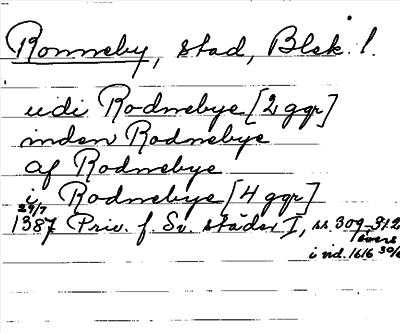 Ronneby, stad, Blek. l.
udi Rodnebye [2 ggr]
inden Rodnebye
af Rodnebye
i Rodnebye [4 ggr]
29/7
1387 Priv. f. Sv. städer I, ss. 309-312
i vid. 1616 30/6